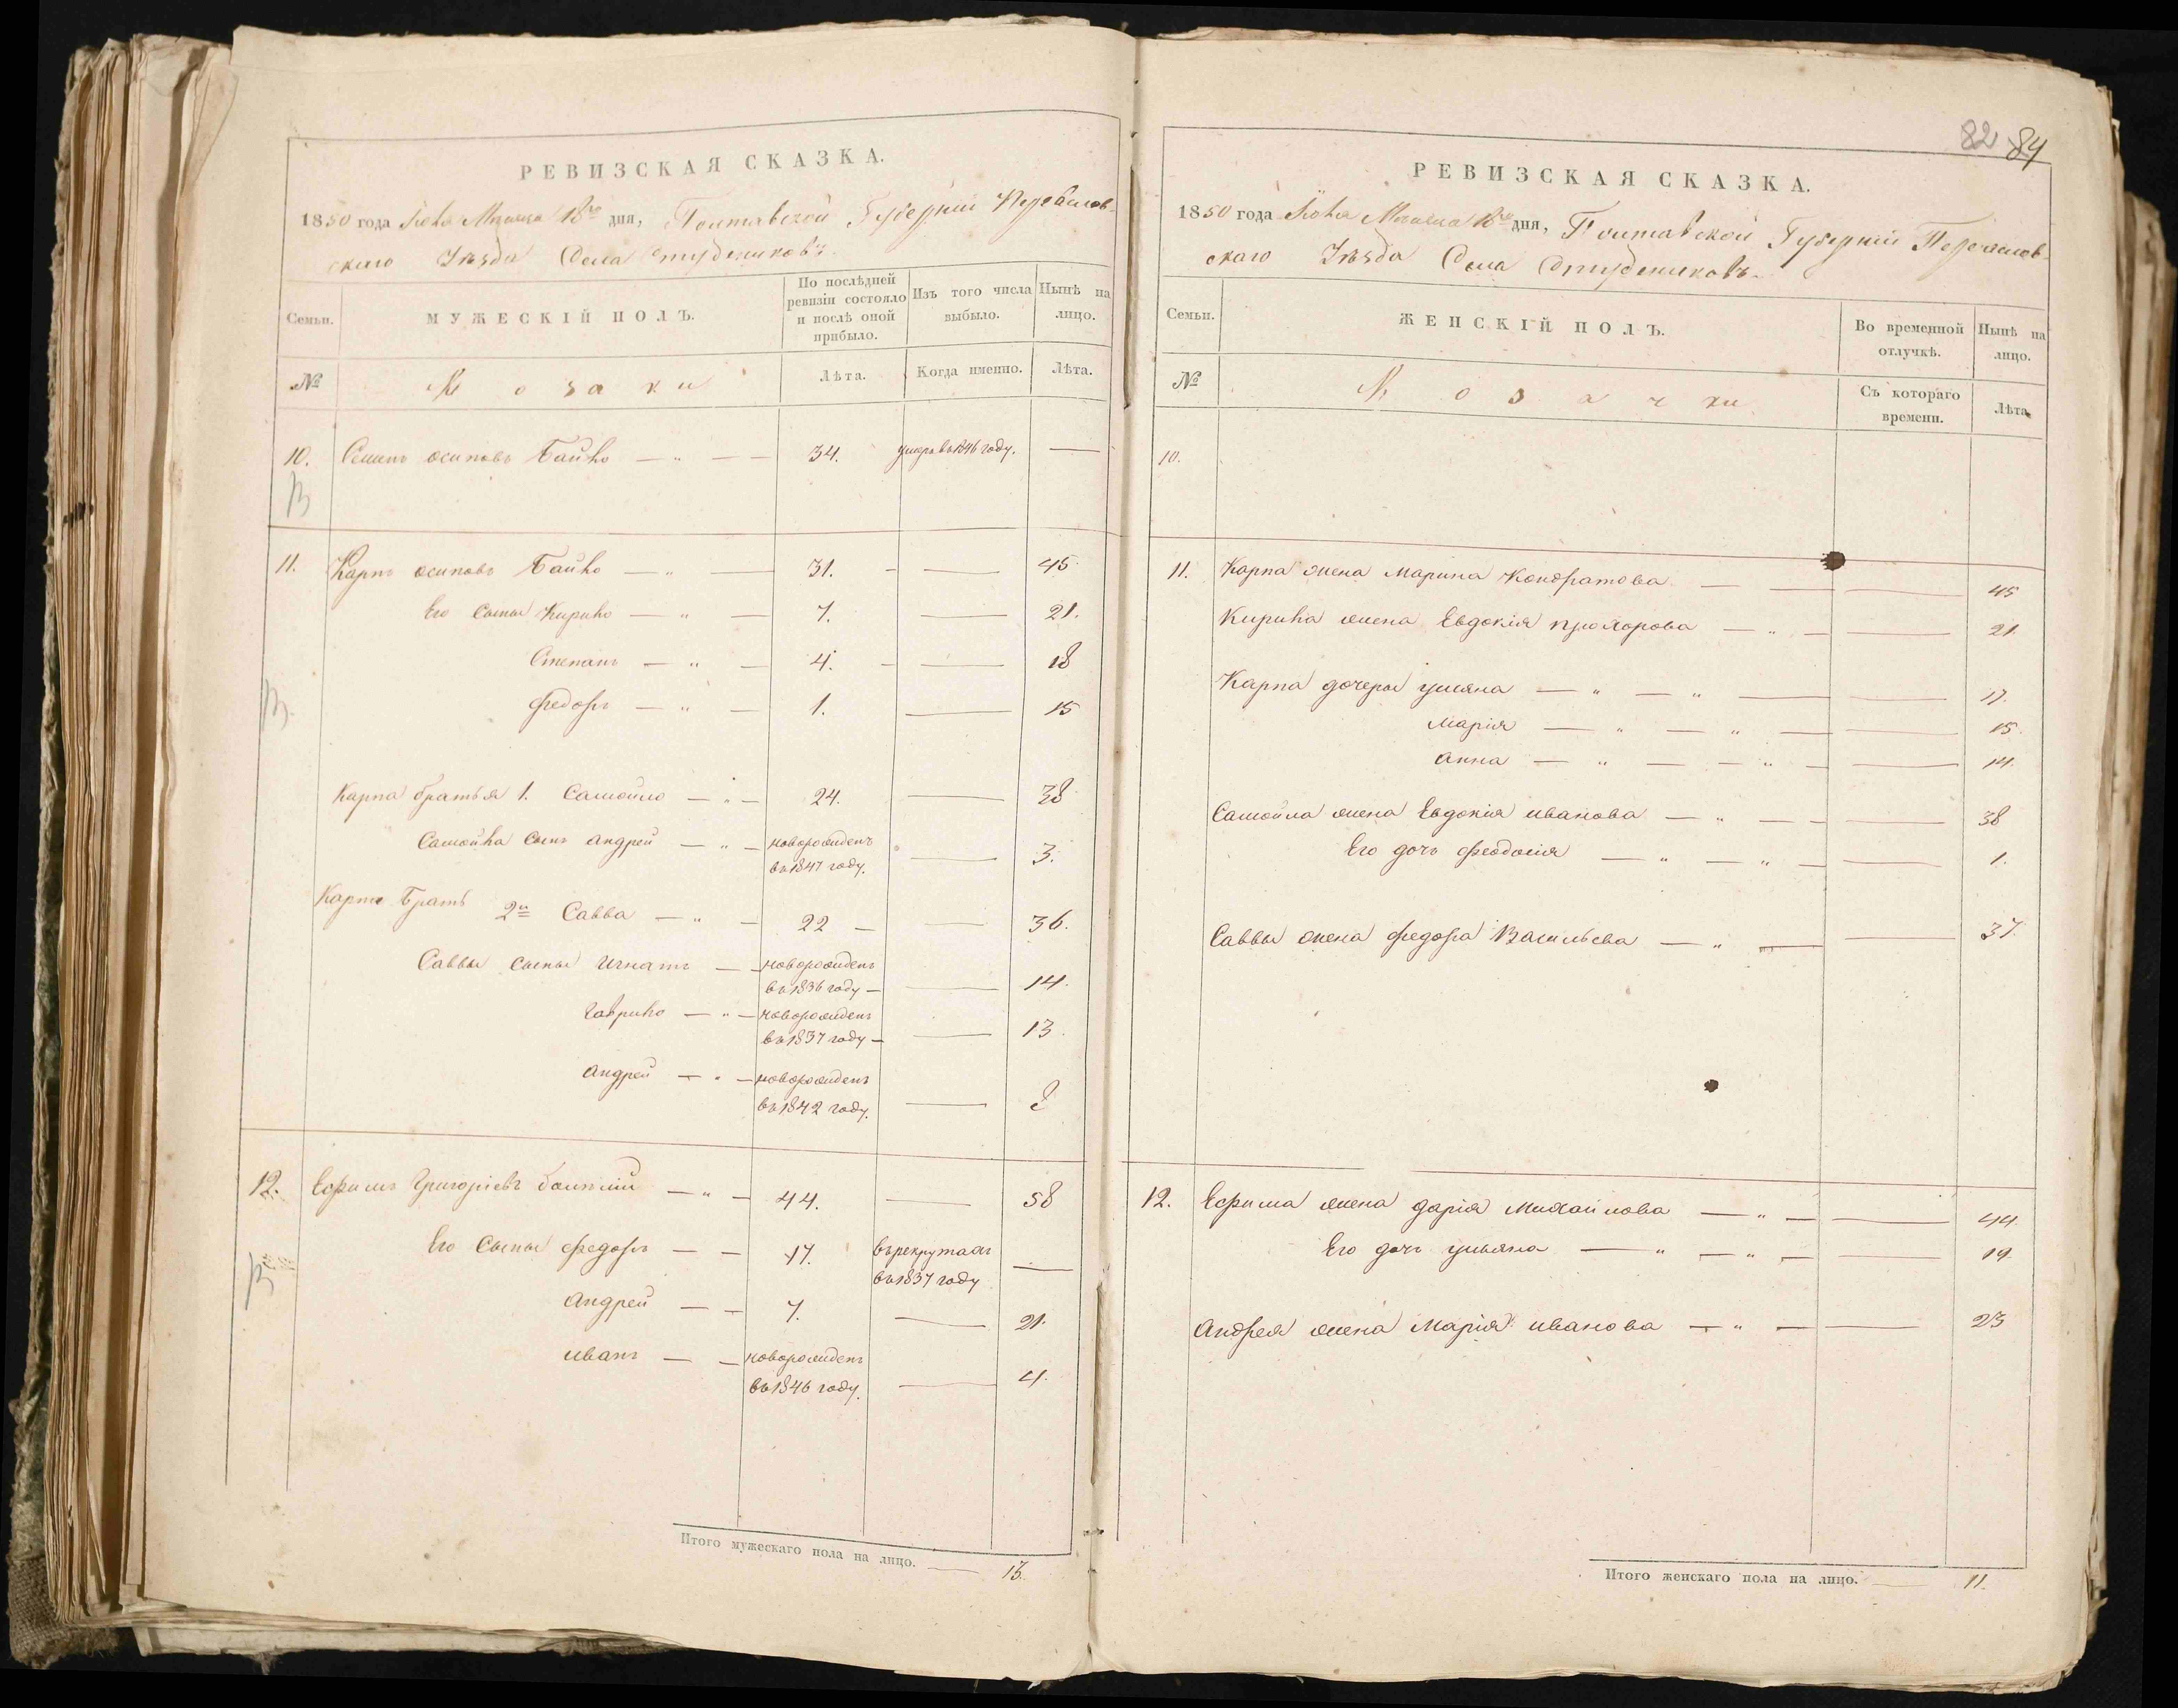 РЕВИЗСКАЯ СКАЗКА.
1850 года Июля Месяца 18го дня, Полтавской Губерніи Переяслов-
скаго Уѣзда Села Студениковъ
Семьи.
МУЖЕСКІЙ ПОЛЪ.
По послѣдней ревизіи состояло и послѣ оной прибыло.
Изъ того числа выбыло.
Нынѣ на лицо.
№
Козаки
Лѣта.
Когда именно.
Лѣта.
10. Семенъ осиповъ Байло — „ — — 34. умеръ въ 1846 году. —
11. Карпъ осиповъ Байло — „ — 31. — — 45
Его сыны Кирило — „ — 7. — 21.
Степанъ — „ — 4. — — 18
Федоръ — „ — 1. — 15
Карпа братья 1. Самойло — „ — 24. — 38
Самойла сынъ андрей — „ — новорожденъ
въ 1847 году. — 3.
Карпа Братъ 2й Савва — „ — 22 — — 36.
Саввы сыны Игнатъ — — новорожденъ
въ 1836 году — — 14.
Гаврило — „ — новорожденъ
въ 1837 году — — 13.
андрей — „ — новорожденъ
въ 1842 году. — 8
12. Ефимъ Григоріевъ — „ — 44. — 58
Его Сыны федоръ — — 17. въ рекрутахъ
въ 1837 году —
Андрей — — 7. — 21.
иванъ — — новорожденъ
въ 1846 году. — 4.
Итого мужескаго пола на лицо. — 13.
82 84
РЕВИЗСКАЯ СКАЗКА.
1850 года Июля Месяца 18го дня, Полтавской Губерніи Переяслов-
скаго Уѣзда Села Студениковъ.
Семьи.
ЖЕНСКІЙ ПОЛЪ.
Во временной отлучкѣ.
Нынѣ на лицо.
№
Козачки
Съ котораго времени.
Лѣта.
10.
11. Карпа жена Марина Кондратова — — — 45
Кирила жена Евдокія прохорова — „ — — 21.
Карпа дочеры уляна — „ — „ — — 17.
Марія — „ — „ — — 15.
анна — „ — — „ — — 14.
Самойла жена Евдокія иванова — „ — — — 38
Его дочь Феодосія — „ — „ — — 1.
Саввы жена федора Васильева — „ — — 37.
12. Ефима жена дарія Михайлова — „ — — 44.
Его дочь ульяна — „ — „ — — 19.
Андрея жена Марія иванова — „ — — 23
Итого женскаго пола на лицо. — 11.